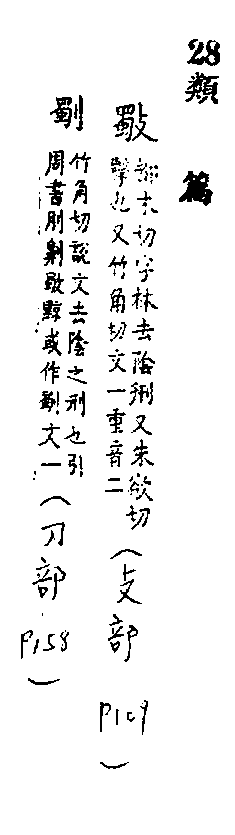 28類篇
斀 都木切字林去陰刑又朱欲切
擊也又竹角切文一重音二(攴部 P109)
劅 竹角切說文去陰之刑也引
周書刖劓斀黥或作劅文一(刀部 P158)